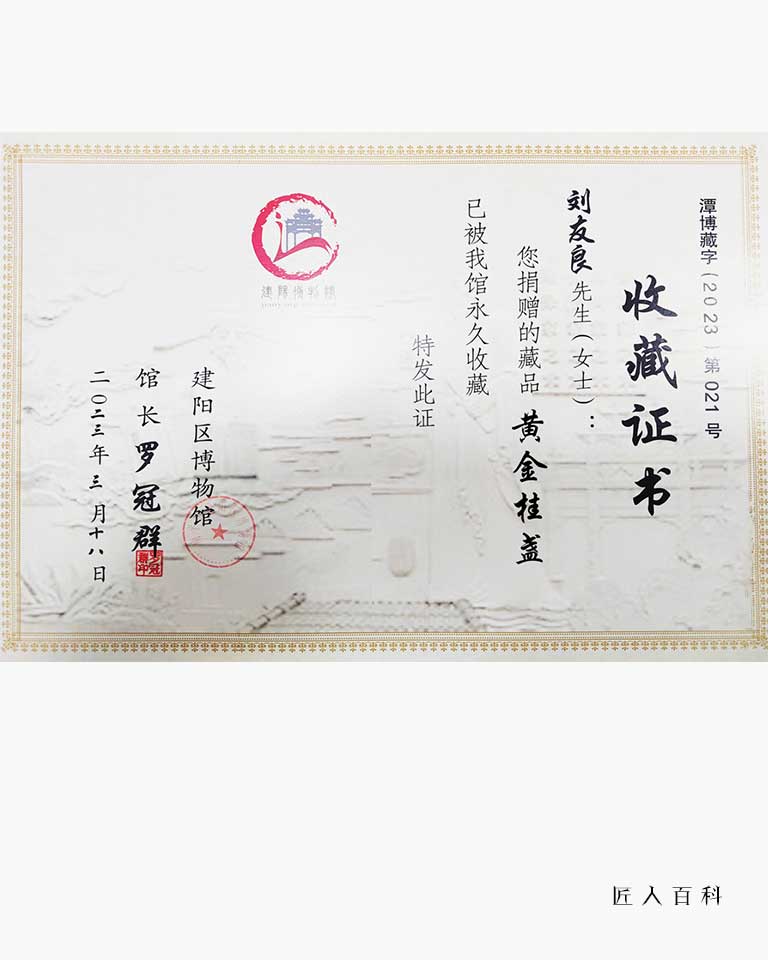 潭博藏字(2023)第021号
收藏证书
刘友良先生(女士):
您捐赠的藏品 黄金桂盏
已被我馆永久收藏
特发此证
建阳博物馆
建阳区博物馆
馆长 罗冠群
二〇二三年三月十八日
匠人百科